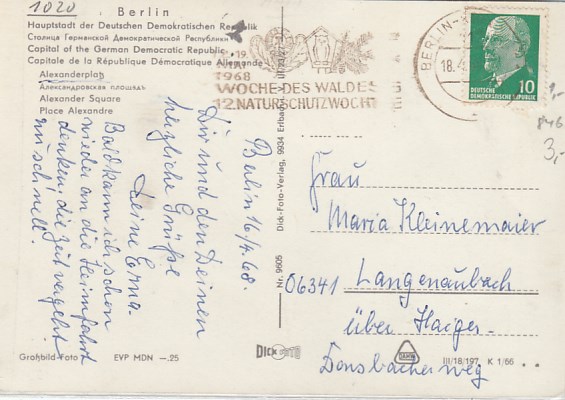 1020
Berlin
Hauptstadt der Deutschen Demokratischen Republik
Столица Германской Демократической Республики
Capital of the German Democratic Republic
Capitale de la République Démocratique Allemande
Alexanderplatz
Александровская площадь
Alexander Square
Place Alexandre
1968
WOCHE DES WALDES
12. NATURSCHUTZWOCHE
BERLIN
18.4
10
DEUTSCHE
DEMOKRATISCHE REPUBLIK
1,-
3,-
Berlin 16/4.68.
Dir und den Deinen
herzliche Grüße
Deine Erna.
Bald kann ich schon
wieder an die Heimfahrt
denken, die Zeit vergeht
zu schnell.
Nr. 9605 Dick-Foto-Verlag, 9934 Erlbach
Frau
Maria Kleinemaier
06341 Langenaubach
über Haiger
Donsbacherweg
Großbild-Foto EVP MDN —.25
DICK
III/18/197 K 1/66